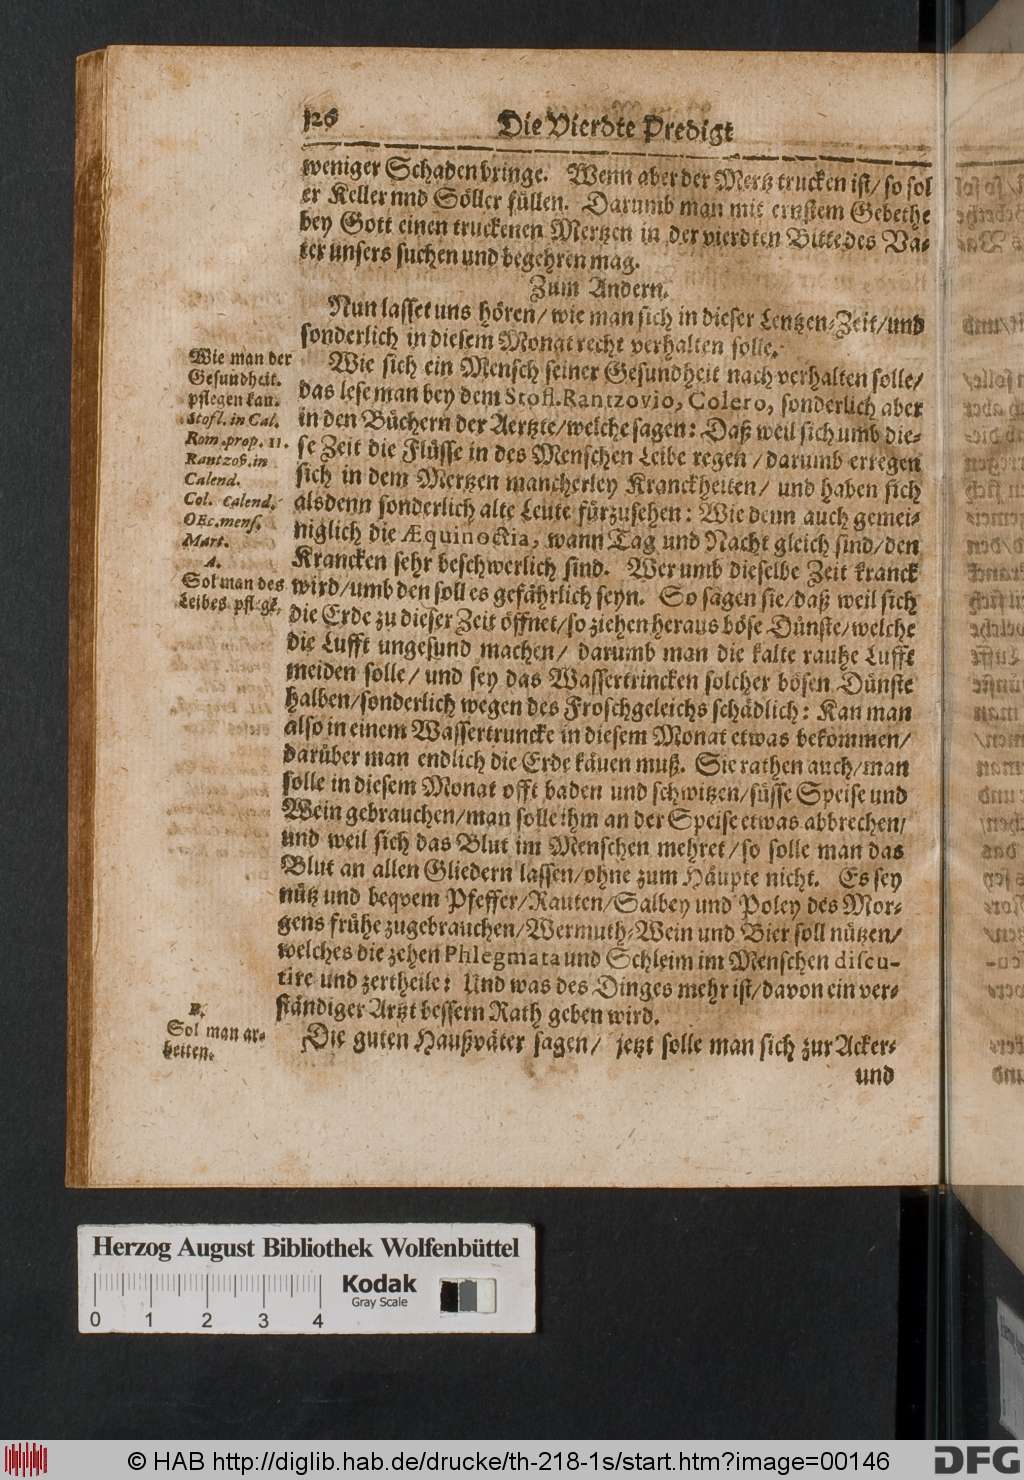 126
Die Vierdte Predigt
weniger Schaden bringe. Wenn aber der Mertz trucken ist/ so sol
er Keller nnd Söller füllen. Darumb man mit ernstem Gebethe
bey Gott einen truckenen Mertzen in der vierdten Bitte des Va-
ter unsers suchen und begehren mag.
Zum Andern.
Nun lasset uns hören/ wie man sich in dieser Lentzen-Zeit/ und
sonderlich in diesem Monat recht verhalten solle.
Wie man der
Gesundheit.
pflegen kan.
Stofl. in Cal.
Rom. prop. 11.
Rantzov. in
Calend.
Col. Calend.
OEc. mens.
Mart.
A.
Sol man des
Leibes pflege.
Wie sich ein Mensch seiner Gesundheit nach verhalten solle/
das lese man bey dem Stofl. Rantzovio, Colero, sonderlich aber
in den Büchern der Aertzte/ welche sagen: Daß weil sich umb die-
se Zeit die Flüsse in des Menschen Leibe regen/ darumb erregen
sich in dem Mertzen mancherley Kranckheiten/ und haben sich
alsdenn sonderlich alte Leute fürzusehen: Wie denn auch gemei-
niglich die Æquinoctia, wann Tag und Nacht gleich sind/ den
Krancken sehr beschwerlich sind. Wer umb dieselbe Zeit kranck
wird/ umb den soll es gefährlich seyn. So sagen sie/ daß weil sich
die Erde zu dieser Zeit öffnet/ so ziehen heraus böse Dünste/ welche
die Lufft ungesund machen/ darumb man die kalte rauhe Lufft
meiden solle/ und sey das Wassertrincken solcher bösen Dünste
halben/ sonderlich wegen des Froschgeleichs schädlich: Kan man
also in einem Wassertruncke in diesem Monat etwas bekommen/
darüber man endlich die Erde käuen muß. Sie rathen auch/ man
solle in diesem Monat offt baden und schwitzen/ süsse Speise und
Wein gebrauchen/ man solle ihm an der Speise etwas abbrechen/
und weil sich das Blut im Menschen mehret/ so solle man das
Blut an allen Gliedern lassen/ ohne zum Häupte nicht. Es sey
nütz und beqvem Pfeffer/ Rauten/ Salbey und Poley des Mor-
gens frühe zugebrauchen/ Wermuth-Wein und Bier soll nützen/
welches die zehen Phlegmata und Schleim im Menschen discu-
tire und zertheile: Und was des Dinges mehr ist/ davon ein ver-
ständiger Artzt bessern Rath geben wird.
B.
Sol man ar-
beiten.
Die guten Haußväter sagen/ jetzt solle man sich zur Acker-
und
Herzog August Bibliothek Wolfenbüttel
Kodak
Gray Scale
0 1 2 3 4
© HAB http://diglib.hab.de/drucke/th-218-1s/start.htm?image=00146
DFG